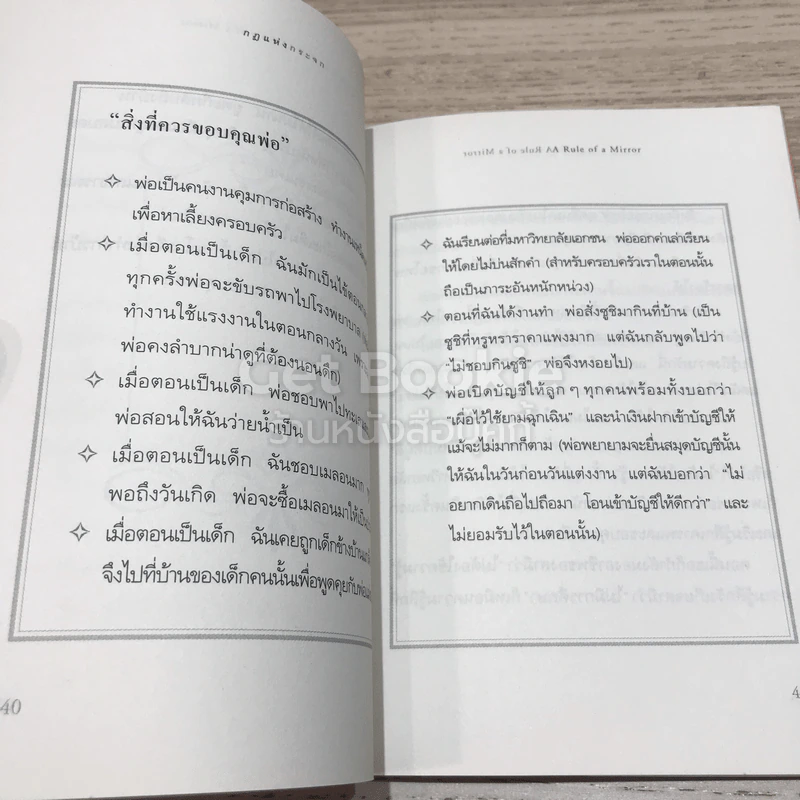 กฎแห่งกระจก
“สิ่งที่ควรขอบคุณพ่อ”
พ่อเป็นคนงานคุมการก่อสร้าง ทำงาน
เพื่อหาเลี้ยงครอบครัว
เมื่อตอนเป็นเด็ก ฉันมักเป็นไข้ตอน
ทุกครั้งพ่อจะขับรถพาไปโรงพยาบาล
ทำงานใช้แรงงานในตอนกลางวัน
พ่อคงลำบากน่าดูที่ต้องนอนดึก)
เมื่อตอนเป็นเด็ก พ่อชอบพาไป
พ่อสอนให้ฉันว่ายน้ำเป็น
เมื่อตอนเป็นเด็ก ฉันชอบเมลอนมาก
พอถึงวันเกิด พ่อจะซื้อเมลอนมาให้
เมื่อตอนเป็นเด็ก ฉันเคยถูกเด็กข้างบ้าน
จึงไปที่บ้านของเด็กคนนั้นเพื่อพูดคุยกับ
40
A Rule of a Mirror
ฉันเรียนต่อที่มหาวิทยาลัยเอกชน พ่อออกค่าเล่าเรียน
ให้โดยไม่บ่นสักคำ (สำหรับครอบครัวเราในตอนนั้น
ถือเป็นภาระอันหนักหน่วง)
ตอนที่ฉันได้งานทำ พ่อสั่งซูชิมากินที่บ้าน (เป็น
ซูชิที่หรูหราราคาแพงมาก แต่ฉันกลับพูดไปว่า
“ไม่ชอบกินซูชิ” พ่อจึงหงอยไป)
พ่อเปิดบัญชีให้ลูก ๆ ทุกคนพร้อมทั้งบอกว่า
“เผื่อไว้ใช้ยามฉุกเฉิน” และนำเงินฝากเข้าบัญชีให้
แม้จะไม่มากก็ตาม (พ่อพยายามจะยื่นสมุดบัญชีนั้น
ให้ฉันในวันก่อนวันแต่งงาน แต่ฉันบอกว่า “ไม่
อยากเดินถือไปถือมา โอนเข้าบัญชีให้ดีกว่า” และ
ไม่ยอมรับไว้ในตอนนั้น)
4
Get Bookie
ร้านหนังสือมือสอง